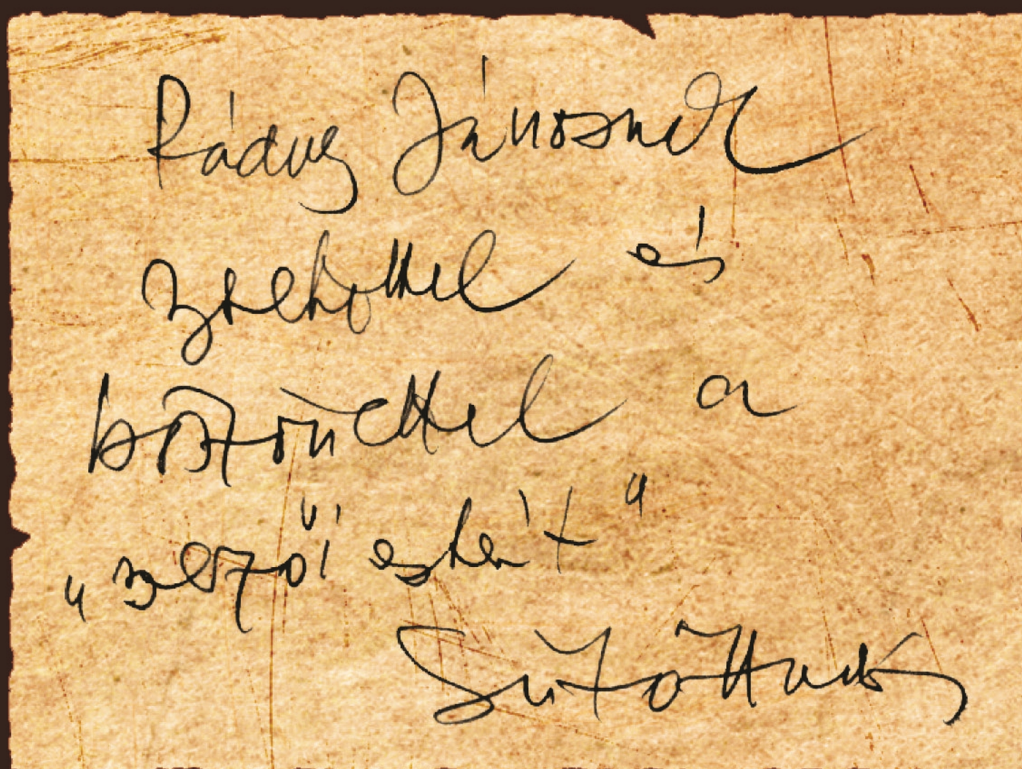 Ráduly Jánosnak
szeretettel és
köszönettel a
„szerzői estért"
Sütő András